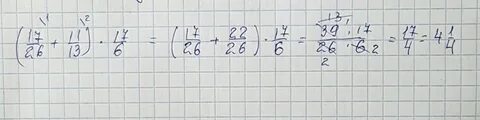 (17/26 \1 + 11/13 \2) · 17/6 = (17/26 + 22/26) · 17/6 = 39 13 · 17 1 / 26 2 · 6 2 = 17/4 = 4 1/4